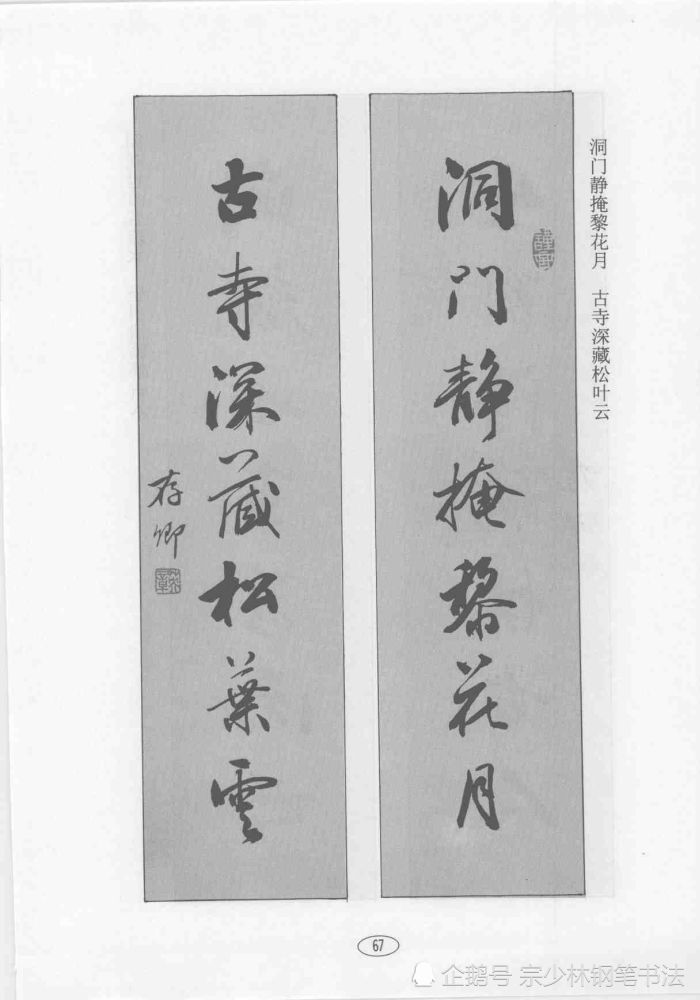 洞门静掩黎花月　古寺深藏松叶云
洞门静掩黎花月
古寺深藏松葉雲
存卿
67
企鹅号 宗少林钢笔书法